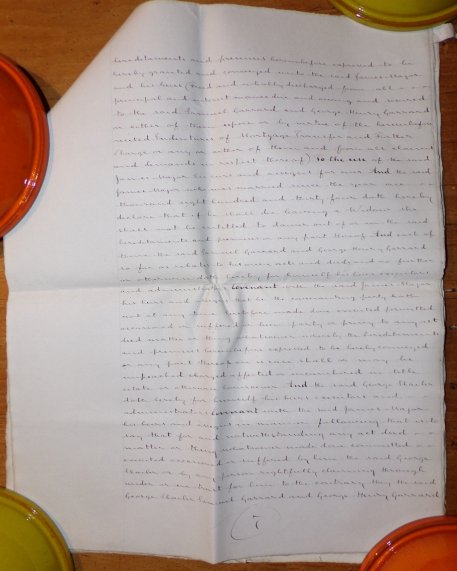 hereditaments and premises hereinbefore expressed to be
hereby granted and conveyed unto the said James Major
and his heirs freed and actually discharged from all
principal and interest monies due and owing and secured
to the said Samuel Garrard and George Henry Garrard
or either of them upon or by virtue of the hereinbefore
recited Indentures of Mortgage Transfer and Further
Charge or any or either of them and from all claims
and demands in respect thereof) to the use of the said
James Major his heirs and assigns for ever And the said
James Major who was married since the year one
thousand eight hundred and thirty four doth hereby
declare that if he shall die leaving a Widow she
shall not be entitled to dower out of or in the said
hereditaments and premises or any part thereof And each of
them the said Samuel Garrard and George Henry Garrard
so far as relates to his own acts and deeds and no further
or otherwise doth hereby for himself his heirs executors
and administrators Covenant with the said James Major
his heirs and
not at any time made done executed permitted
or been party or privy to any act
deed matter or thing whatsoever whereby the hereditaments
and premises hereinbefore expressed to be hereby conveyed
or any part thereof are is or shall or may be
impeached charged affected or incumbered in title
estate or otherwise howsoever And the said George Charles
doth hereby for himself his heirs executors and
administrators Covenant with the said James Major
his heirs and assigns in manner following that is to
say that for and notwithstanding any act deed
matter or thing whatsoever made done committed
executed or suffered by him the said George
Charles or by any person rightfully claiming through
under or in trust for him to the contrary they the said
George Charles Samuel Garrard and George Henry Garrard
7